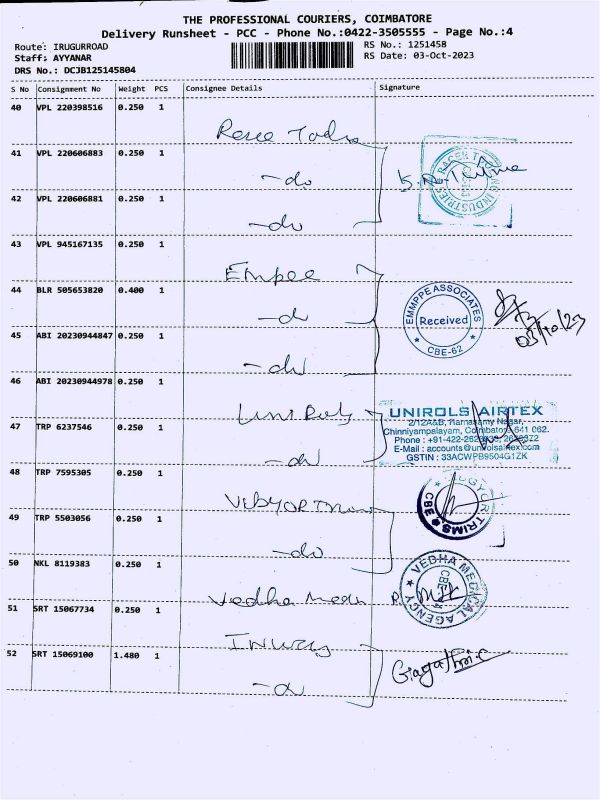 THE PROFESSIONAL COURIERS, COIMBATORE
Delivery Runsheet - PCC - Phone No.:0422-3505555 - Page No.:4
Route: IRUGURROAD
RS No.: 1251458
Staff: AYYANAR
RS Date: 03-Oct-2023
DRS No.: DCJB125145804
S No Consignment No Weight PCS Consignee Details Signature
40 VPL 220398516 0.250 1
41 VPL 220606883 0.250 1 -do
42 VPL 220606881 0.250 1 -do
43 VPL 945167135 0.250 1 Empee
44 BLR 505653820 0.400 1 -do
EMMPPE ASSOCIATES
Received
CBE-62
03/10/23
45 ABI 20230944847 0.250 1 -do
46 ABI 20230944978 0.250 1
UNIROLS AIRTEX
2/12A&B, Ramasamy Nagar,
Chinniyampalayam, Coimbatore 641 062.
Phone : +91-422-
E-Mail : accounts@unirolsairtex.com
GSTIN : 33ACWPB9504G1ZK
47 TRP 6237546 0.250 1 -do
48 TRP 7595305 0.250 1
TRIMS
CBE
49 TRP 5503056 0.250 1 -do
50 NKL 8119383 0.250 1 Vedha Medi
VEDHA MEDICAL AGENCY
CBE
51 SRT 15067734 0.250 1
52 SRT 15069100 1.480 1 -do